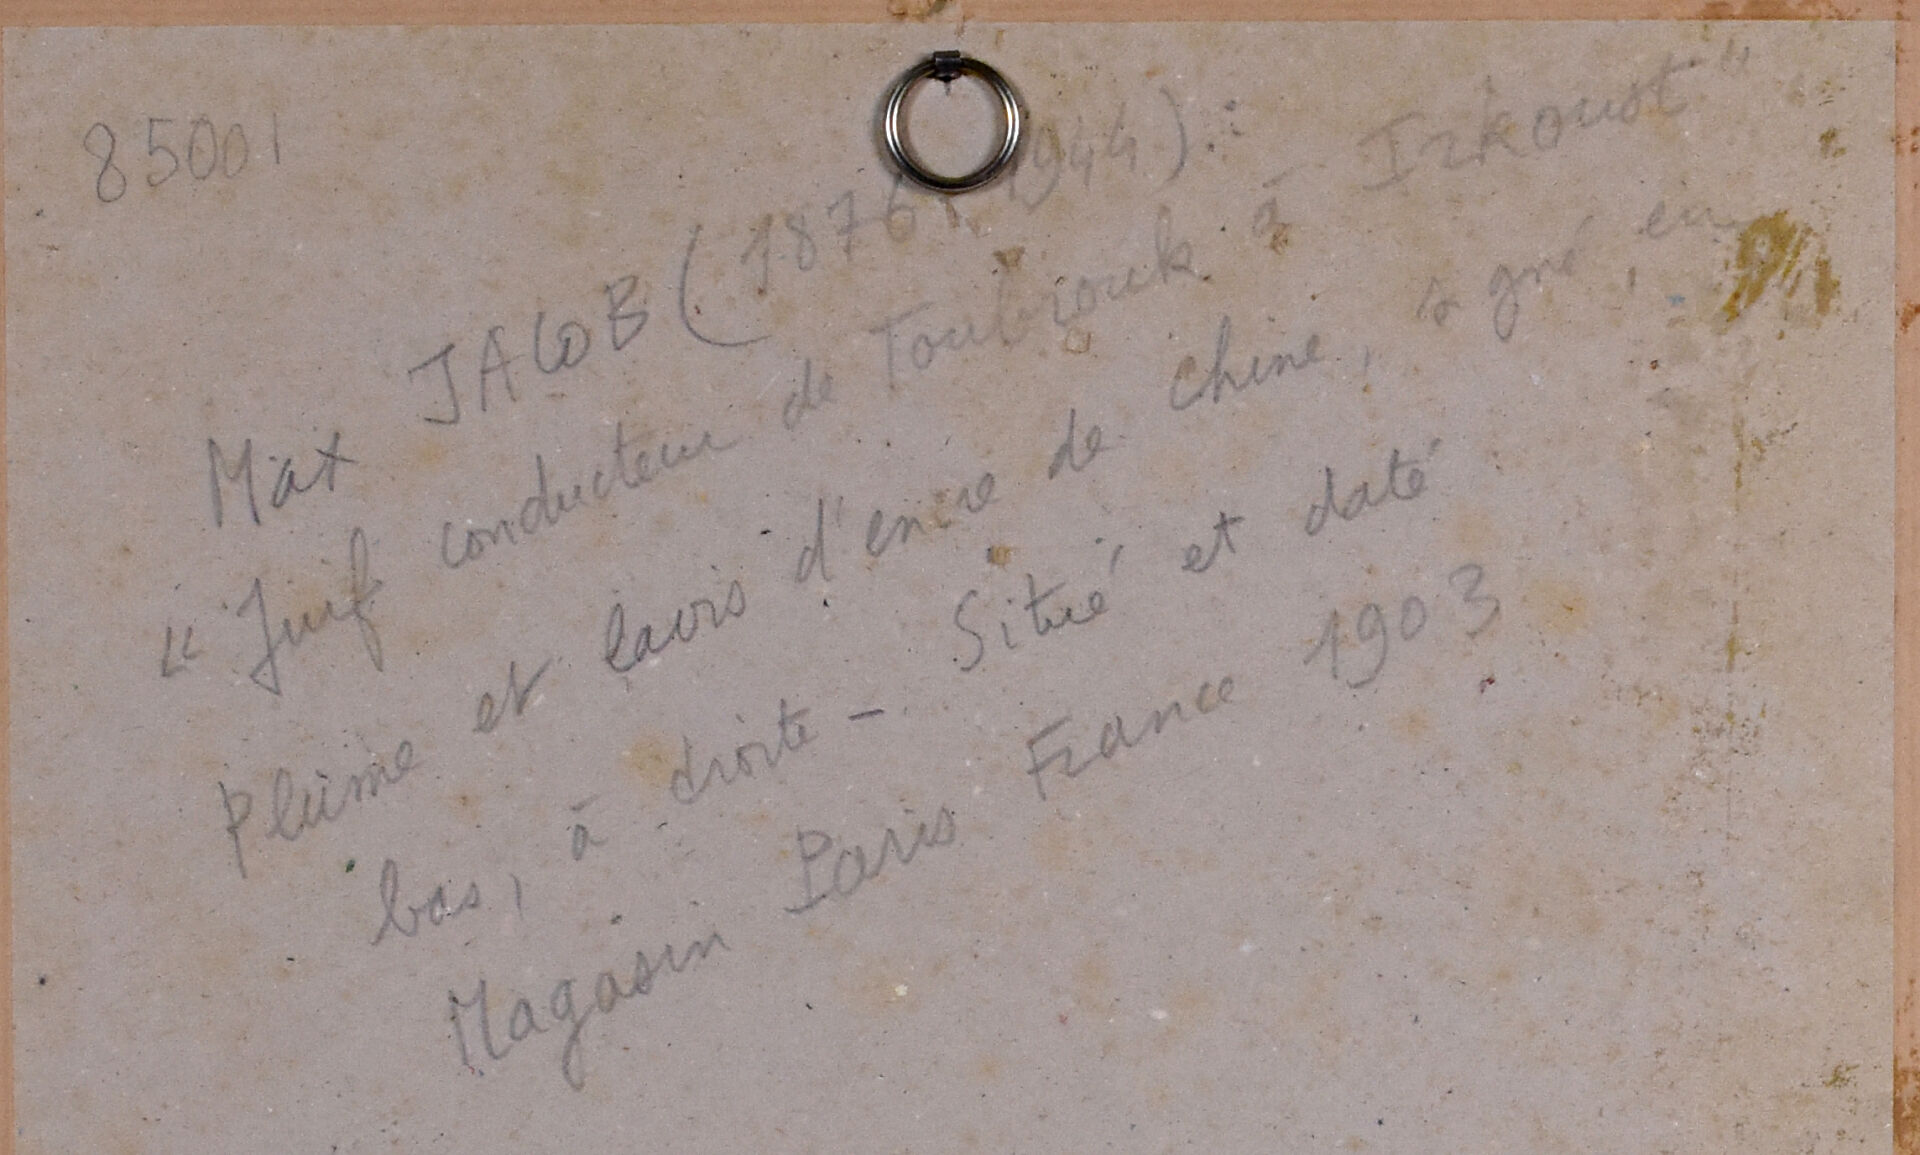 85001
Max JACOB (1876-1944):
"Juif conducteur de Toubrouk à Irkoust"
Plume et lavis d'encre de chine, signé, en
bas, à droite - Situé et daté
Magasin Paris France 1903